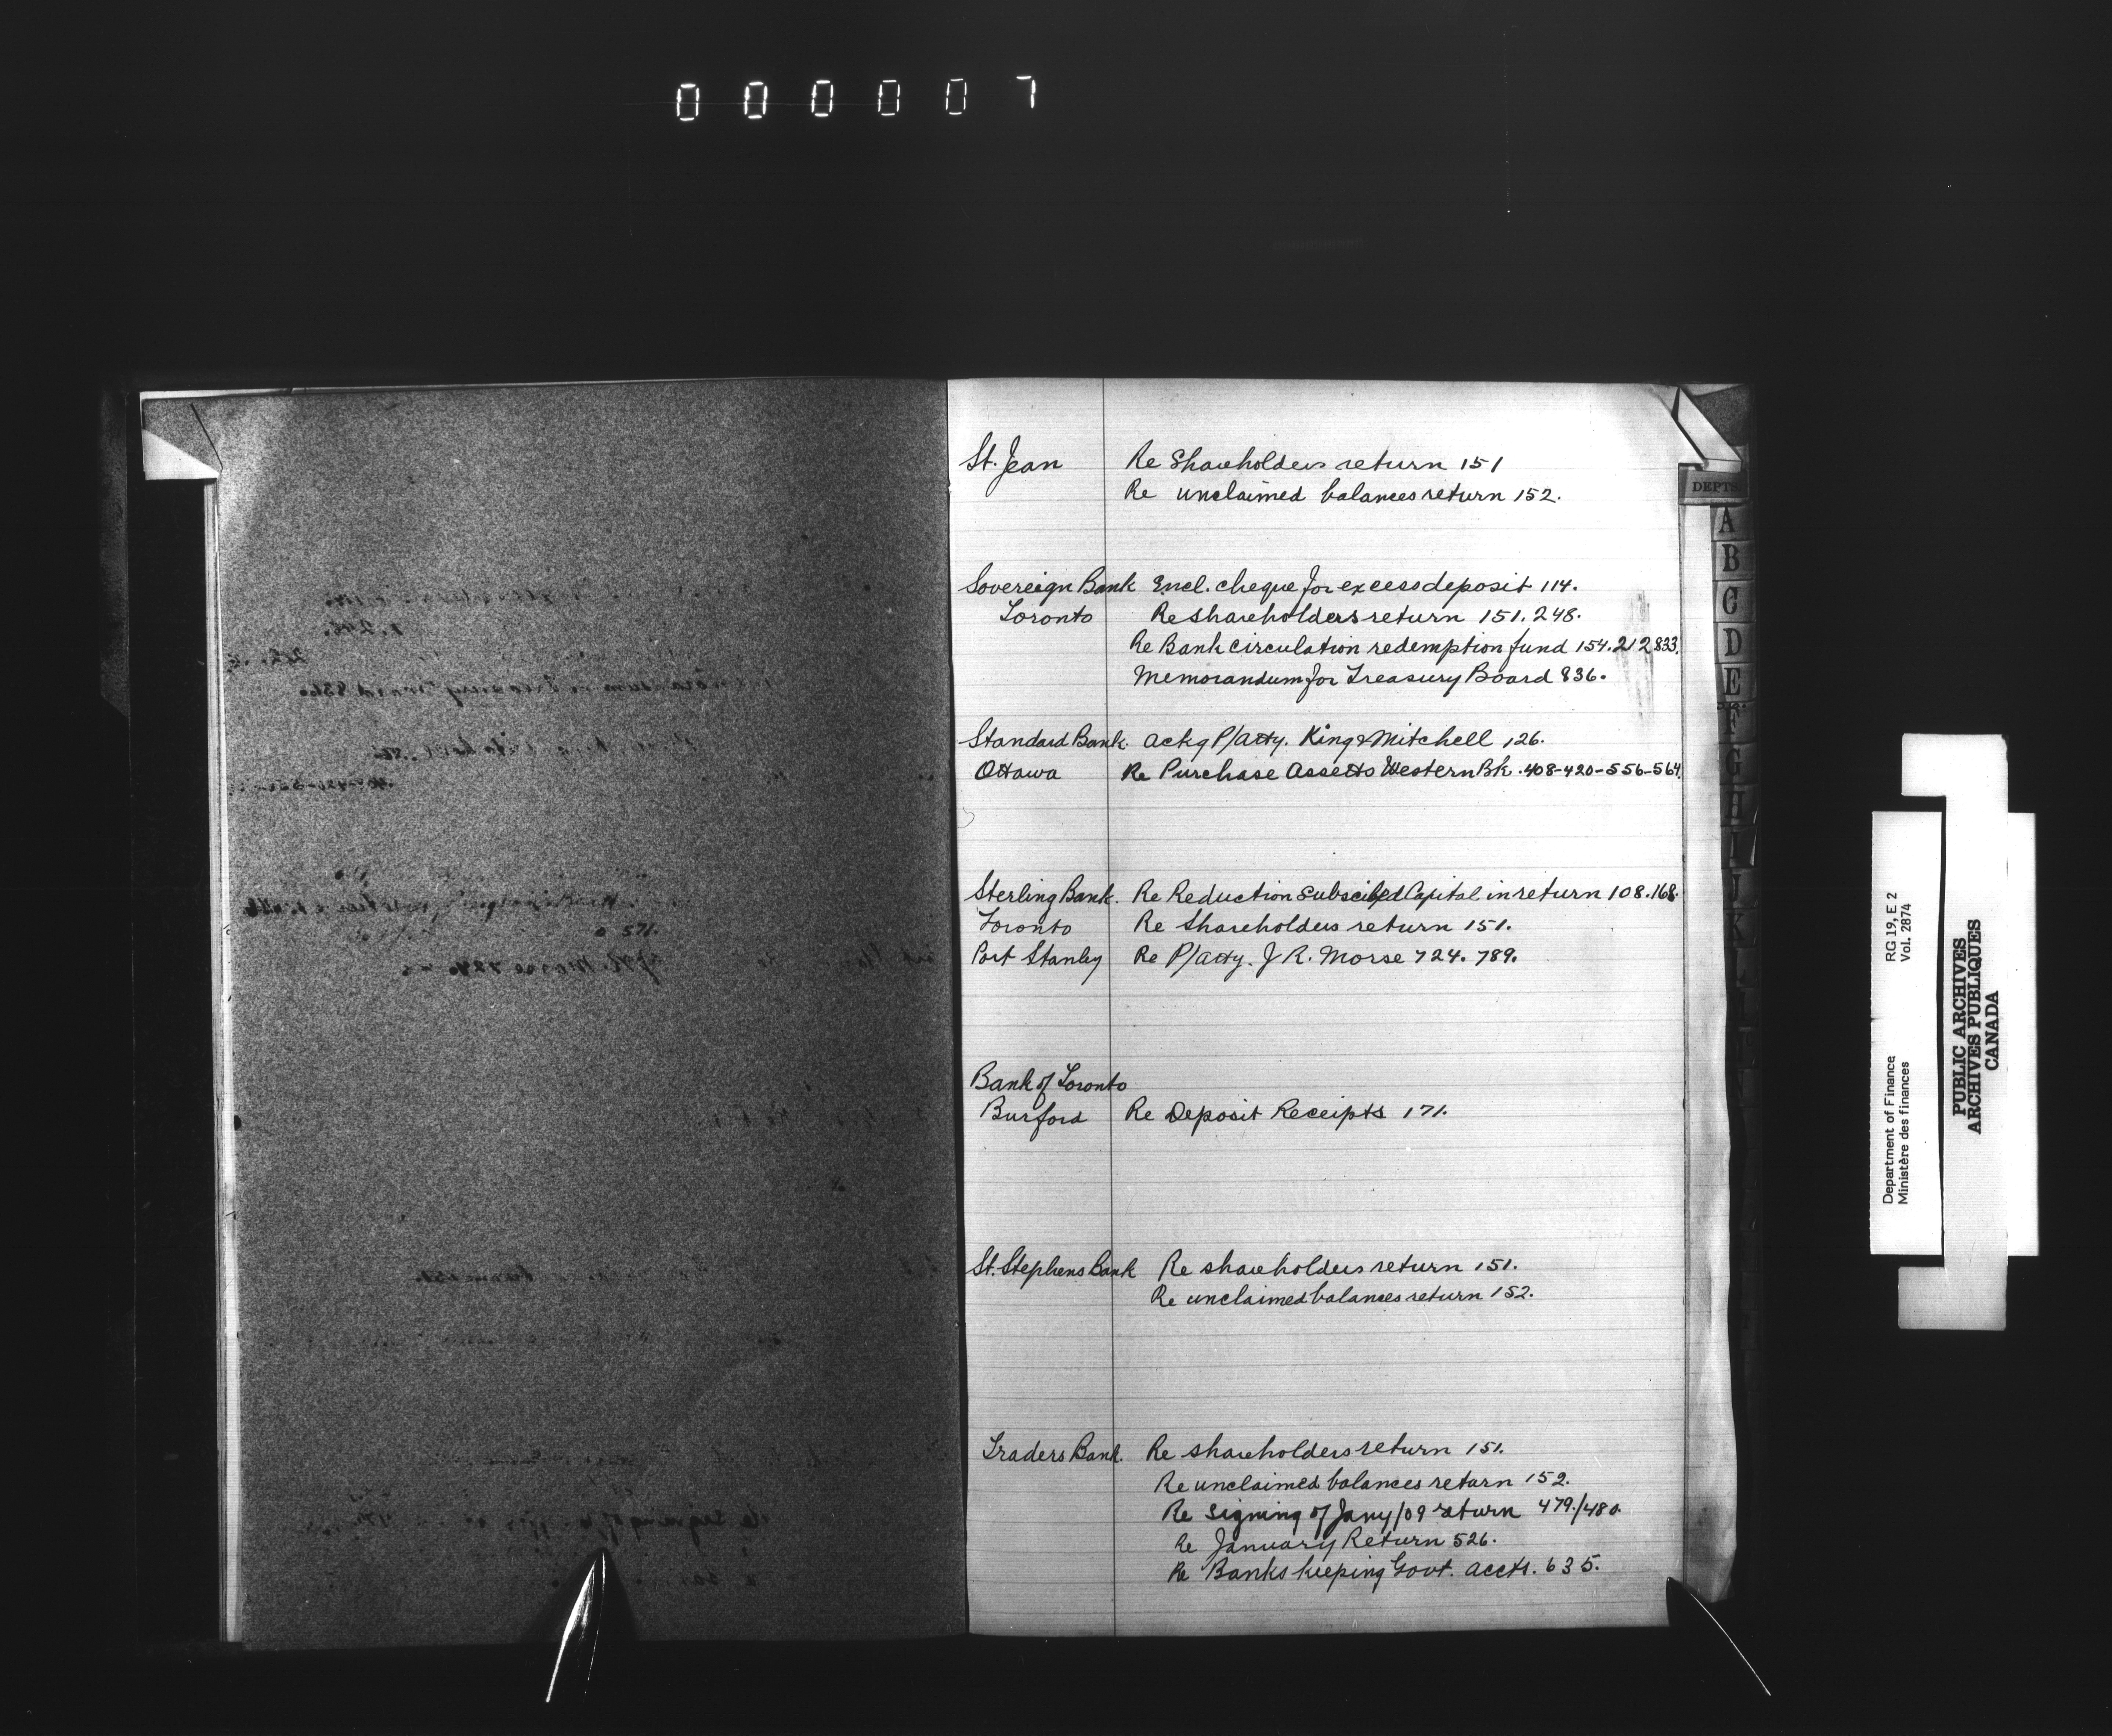 000007
St. Jean Re Shareholders return 151
Re unclaimed balances return 152.
Sovereign Bank Encl. cheque for excess deposit 114.
Toronto Re shareholders return 151. 248.
Re Bank circulation redemption fund 154. 212 833.
Memorandum for Treasury Board 836.
Standard Bank. Ackg P/Atty. King & Mitchell 126.
Ottawa Re Purchase Assetts Western Bk. 408-420-556-564.
Sterling Bank. Re Reduction Subscibed Capital in return 108. 168.
Toronto Re Shareholders return 151.
Port Stanley Re P/Atty. J R. Morse 724. 789.
Bank of Toronto
Burford Re Deposit Receipts 171.
St. Stephens Bank Re shareholders return 151.
Re unclaimed balances return 152.
Traders Bank. Re shareholders return 151.
Re unclaimed balances return 152.
Re Signing of Jany/09 return 479./480.
Re January Return 526.
Re Banks keeping Govt. accts. 635.
DEPTS.
A
B
C
D
E
F
G
H
I
J
K
Department of Finance RG 19, E 2
Ministère des finances Vol. 2874
PUBLIC ARCHIVES
ARCHIVES PUBLIQUES
CANADA